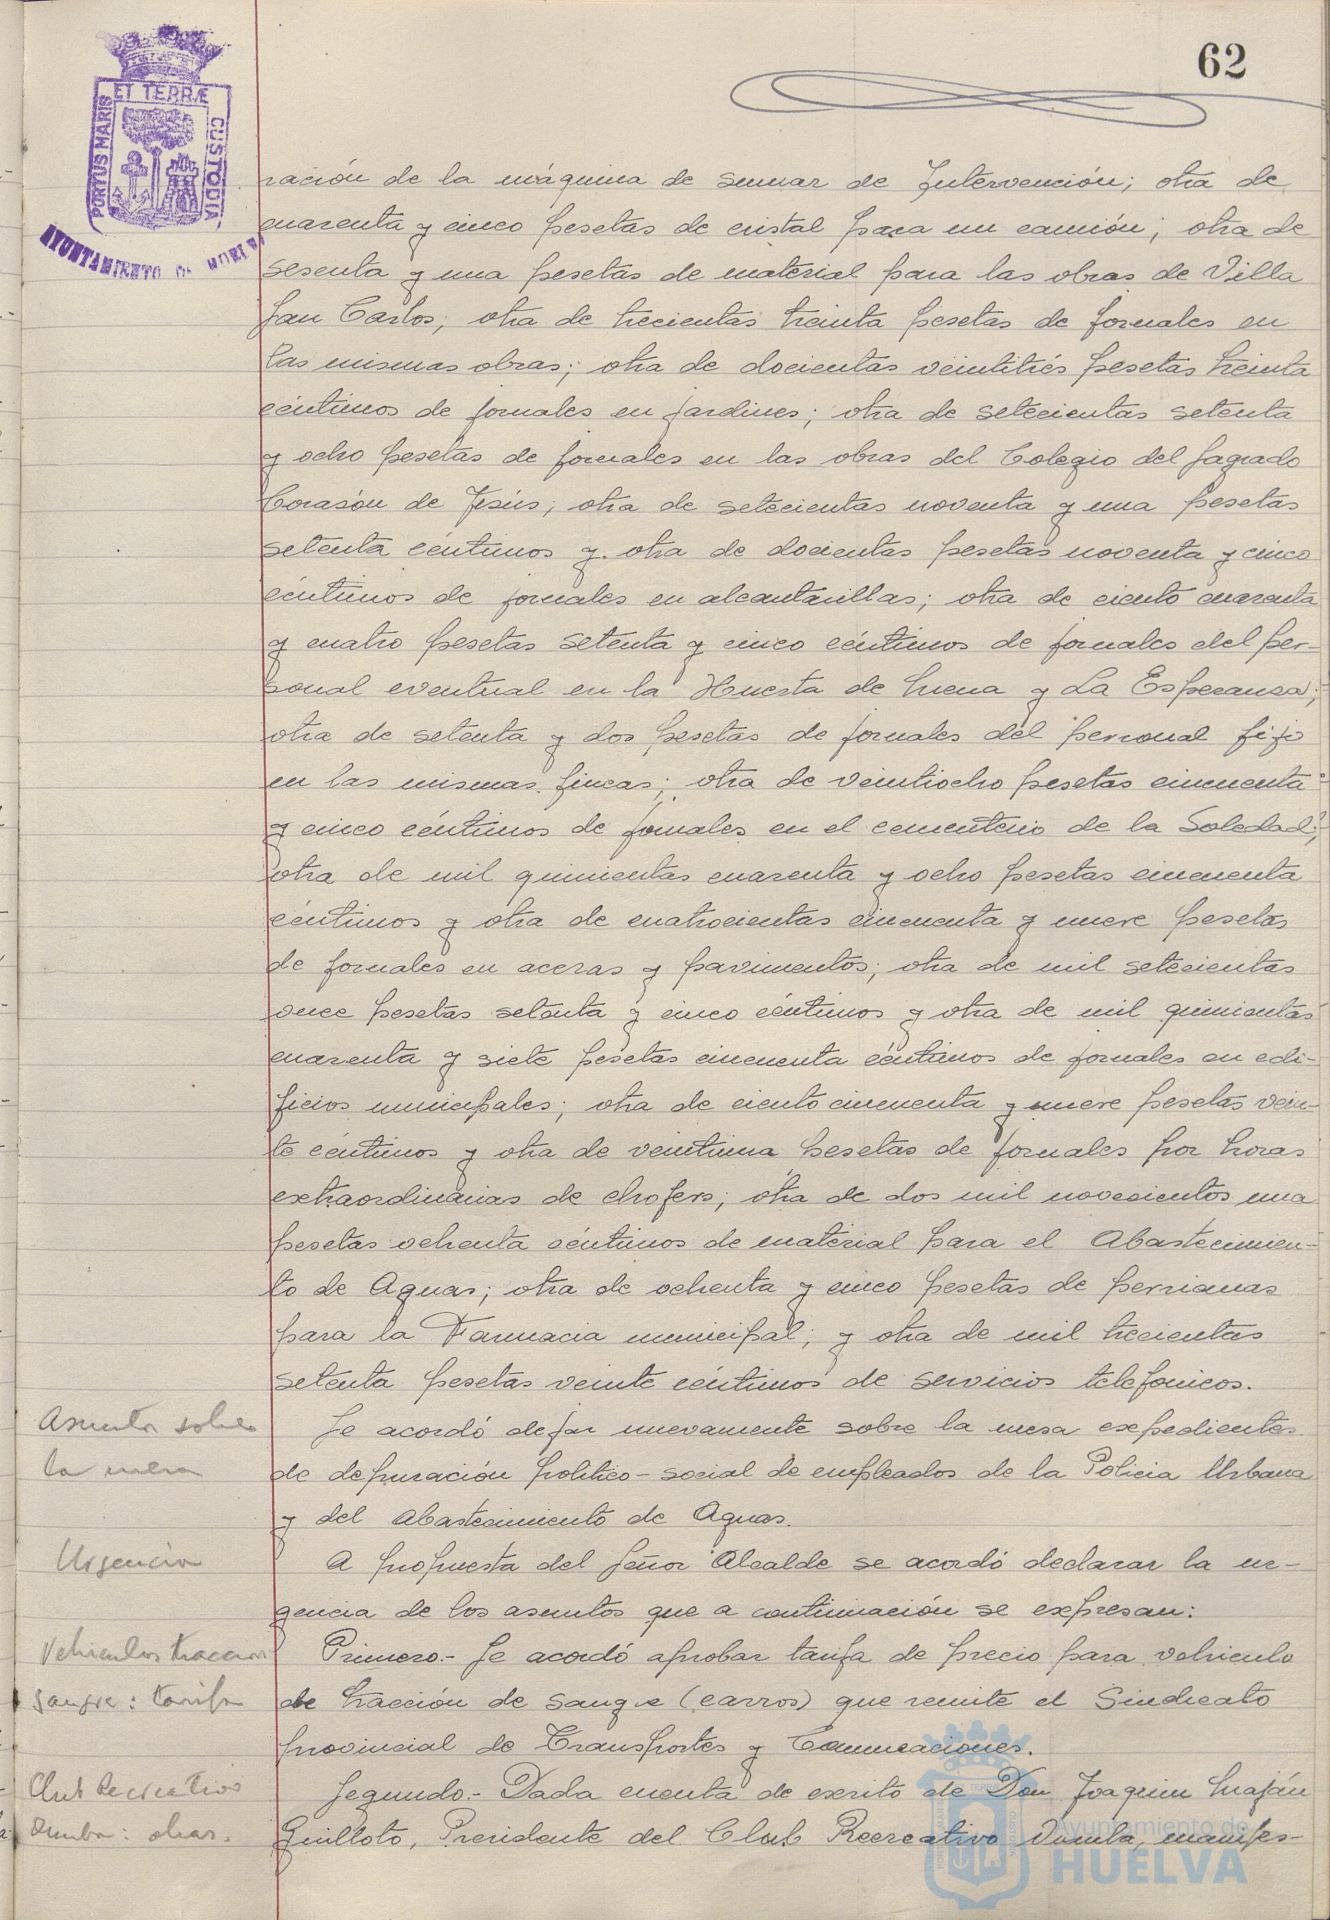 62
PORTUS MARIS
ET TERRÆ
CUSTODIA
AYUNTAMIENTO DE HUELVA
ración de la máquina de sumar de Intervención; otra de
cuarenta y cinco pesetas de cristal para un camión; otra de
sesenta y una pesetas de material para las obras de Villa
San Carlos; otra de trecientas treinta pesetas de jornales en
las mismas obras; otra de docientas veintitrés pesetas treinta
céntimos de jornales en jardines; otra de setecientas setenta
y ocho pesetas de jornales en las obras del Colegio del Sagrado
Corasón de Jesús; otra de setecientas noventa y una pesetas
setenta céntimos y otra de docientas pesetas noventa y cinco
céntimos de jornales en alcantarillas; otra de ciento cuarenta
y cuatro pesetas setenta y cinco céntimos de jornales del per-
sonal eventual en la Huerta de Mena y La Esperansa;
otra de setenta y dos pesetas de jornales del personal fijo
en las mismas fincas; otra de veintiocho pesetas cincuenta
y cinco céntimos de jornales en el cementerio de la Soledad;
otra de mil quinientas cuarenta y ocho pesetas cincuenta
céntimos y otra de cuatrocientas cincuenta y nueve pesetas
de jornales en aceras y pavimentos; otra de mil setecientas
once pesetas setenta y cinco céntimos y otra de mil quinientas
cuarenta y siete pesetas cincuenta céntimos de jornales en edi-
ficios municipales; otra de ciento cincuenta y nueve pesetas vein-
te céntimos y otra de veintiuna pesetas de jornales por horas
extraordinarias de chofers; otra de dos mil novecientos una
pesetas ochenta céntimos de material para el Abastecimien-
to de Aguas; otra de ochenta y cinco pesetas de persianas
para la Farmacia municipal; y otra de mil trecientas
setenta pesetas veinte céntimos de servicios telefónicos.
Asuntos sobre
la mesa
Se acordó dejar nuevamente sobre la mesa expedientes
de depuración político-social de empleados de la Policia Urbana
y del Abastecimiento de Aguas.
Urgencia
A propuesta del Señor Alcalde se acordó declarar la ur-
gencia de los asuntos que a continuación se expresan:
Vehiculos traccion
sangre: tarifa
Primero.- Se acordó aprobar tarifa de precio para vehiculo
de tracción de sangre (carros) que remite el Sindicato
provincial de Transportes y Comunicaciones.
Club Recreativo
Onuba: obras.
Segundo.- Dada cuenta de escrito de Don Joaquin
Guilloto, Presidente del Club Recreativo Onuba, manifes-
Ayuntamiento de
HUELVA